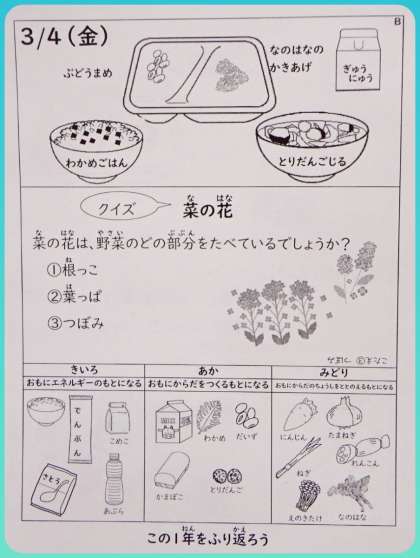 B
3/4(金)
ぶどうまめ
なのはなの
かきあげ
ぎゅう
にゅう
わかめごはん
とりだんごじる
クイズ
菜の花
な はな
菜の花は、野菜のどの部分をたべているでしょうか?
な はな やさい ぶぶん
①根っこ
ね
②葉っぱ
は
③つぼみ
きいろ
あか
みどり
おもにエネルギーのもとになる
おもにからだをつくるもとになる
おもにからだのちょうしをととのえるもとになる
でんぷん
こめこ
さとう
あぶら
わかめ
だいず
かまぼこ
とりだんご
にんじん
たまねぎ
ねぎ
れんこん
えのきたけ
なのはな
この1年をふり返ろう
ねん かえ